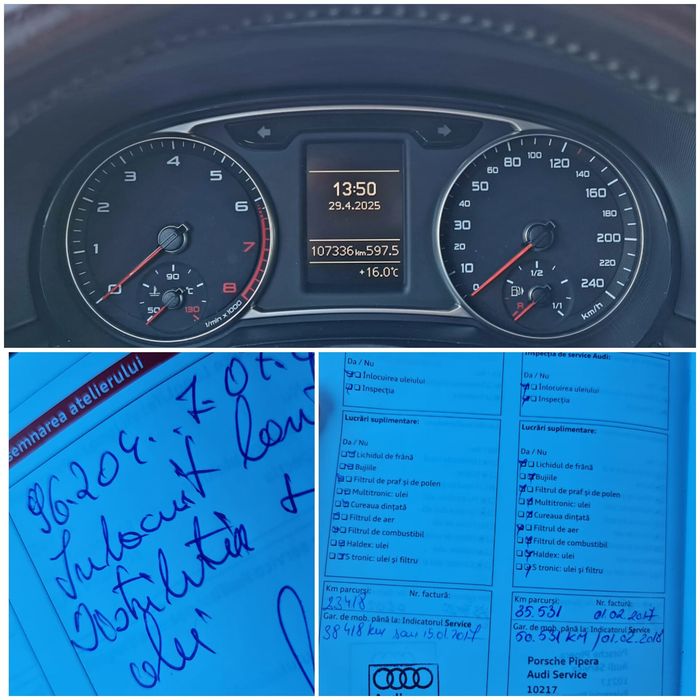 1 2 3 4 5 6 7 8
1/min x 1000
50 90 130 °C
13:50
29.4.2025
107336 km 597.5
+16.0°C
0 10 20 30 40 50 60 80 100 120 140 160 180 200 220 240
km/h
R 1/2 1/1
semnarea atelierului
96.204
Înlocuit
distribuție +
ulei
Da / Nu
Înlocuirea uleiului
Inspecția
Lucrări suplimentare:
Da / Nu
Lichidul de frână
Bujiile
Filtrul de praf și de polen
Multitronic: ulei
Cureaua dințată
Filtrul de aer
Filtrul de combustibil
Haldex: ulei
S tronic: ulei și filtru
Km parcurși: Nr. factură:
23418
Gar. de mob. până la: Indicatorul Service
38418 km sau 15.01.2017
Audi
Inspecția de service Audi:
Da / Nu
Înlocuirea uleiului
Inspecția
Lucrări suplimentare:
Da / Nu
Lichidul de frână
Bujiile
Filtrul de praf și de polen
Multitronic: ulei
Cureaua dințată
Filtrul de aer
Filtrul de combustibil
Haldex: ulei
S tronic: ulei și filtru
Km parcurși: Nr. factură:
35.531 01.02.2017
Gar. de mob. până la: Indicatorul Service
50.531 KM /01.02.2018
Porsche Pipera
Audi Service
10217